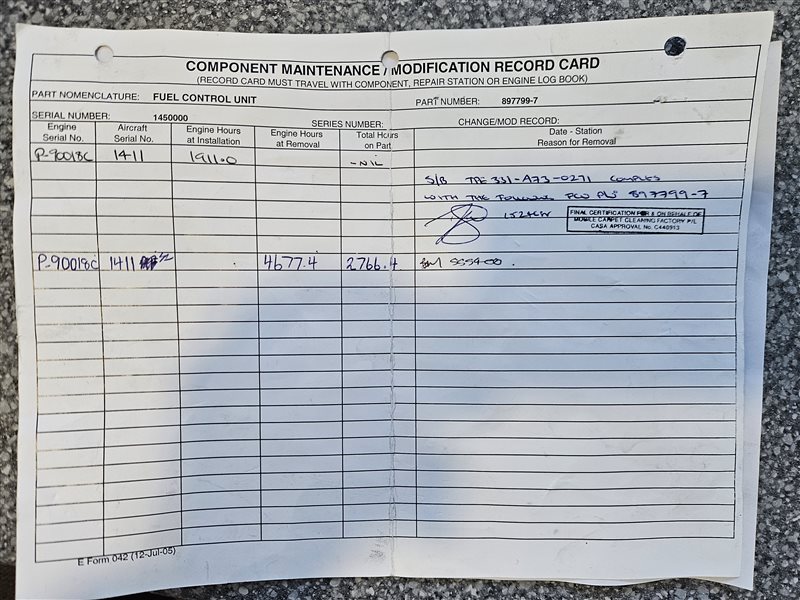 COMPONENT MAINTENANCE / MODIFICATION RECORD CARD
(RECORD CARD MUST TRAVEL WITH COMPONENT, REPAIR STATION OR ENGINE LOG BOOK)
PART NOMENCLATURE: FUEL CONTROL UNIT PART NUMBER: 897799-7
SERIAL NUMBER: 1450000 SERIES NUMBER: CHANGE/MOD RECORD:
Engine Serial No. Aircraft Serial No. Engine Hours at Installation Engine Hours at Removal Total Hours on Part Date - Station Reason for Removal
P-90018C 1411 1911.0 -NIL
S/B TPE 331-A73-0271 COMPLIES
WITH THE FOLLOWING FCU P/N 897799-7
FINAL CERTIFICATION FOR & ON BEHALF OF
MOBILE CARPET CLEANING FACTORY P/L
CASA APPROVAL No. C440913
P-90018C 1411 4677.4 2766.4
E Form 042 (12-Jul-05)